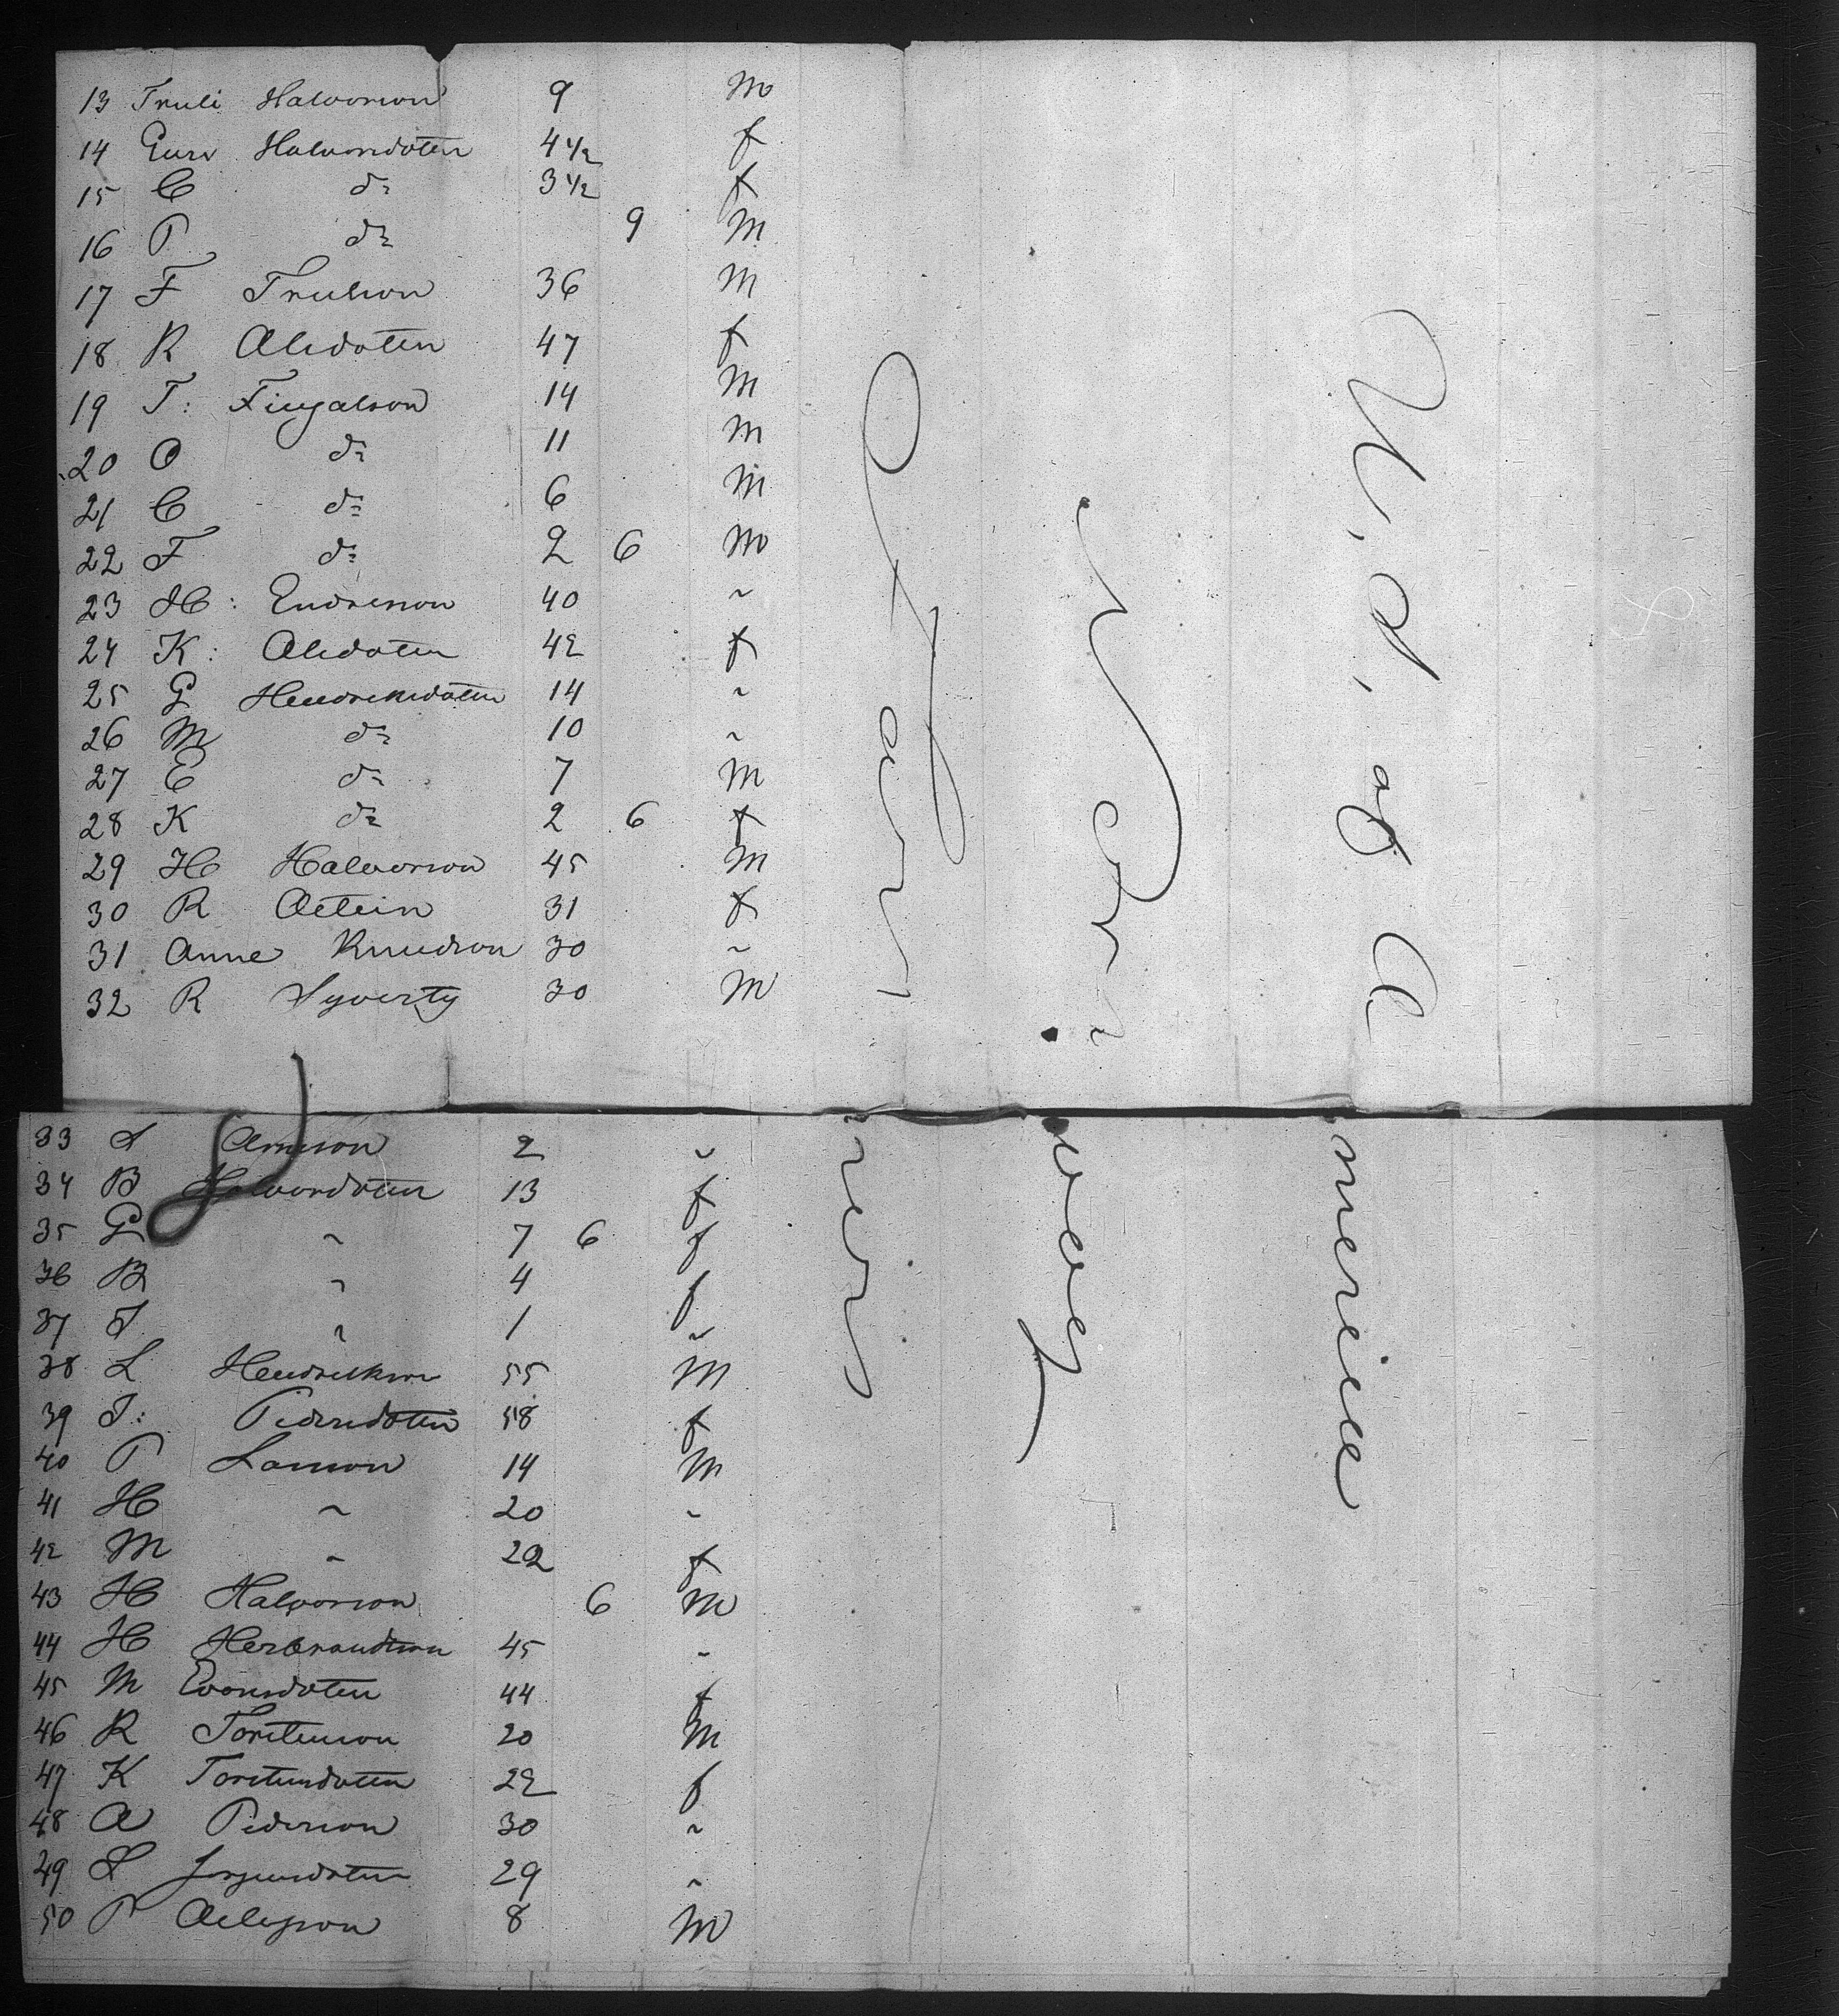 13 Truli Halvorson 9 m
14 Guro Halvorsdotter 4 1/2 f
15 C do 3 1/2 f
16 P do 9 M
17 F Trulson 36 M
18 R Olesdotten 47 f
19 T: Fingalson 14 M
20 O do 11 M
21 C do 6 M
22 F do 2 6 M
23 H: Endreson 40 ~
24 K: Olesdotten 42 f
25 G Hendreksdotten 14 ~
26 M do 10 ~
27 E do 7 M
28 K do 2 6 f
29 H Halvorson 45 M
30 R 31 f
31 Anne Knudson 30 ~
32 R Syverty 30 M
33 S 2 ~
34 B Halvorsdotten 13 f
35 G ~ 7 6 f
36 B ~ 4 f
37 ~ 1 ~
38 L Hendrickson 55 M
39 Pedersdotten 58 f
40 P Larsson 14 M
41 H ~ 20 ~
42 M ~ 22 f
43 H Halvorson 6 M
44 H Herbrandson 45 ~
45 M 44 f
46 R Torstenson 20 M
47 K Torstensdotten 22 f
48 A Pederson 30 ~
49 S 29 ~
50 P 8 M
Farmers
Norway
U, S, of America
8